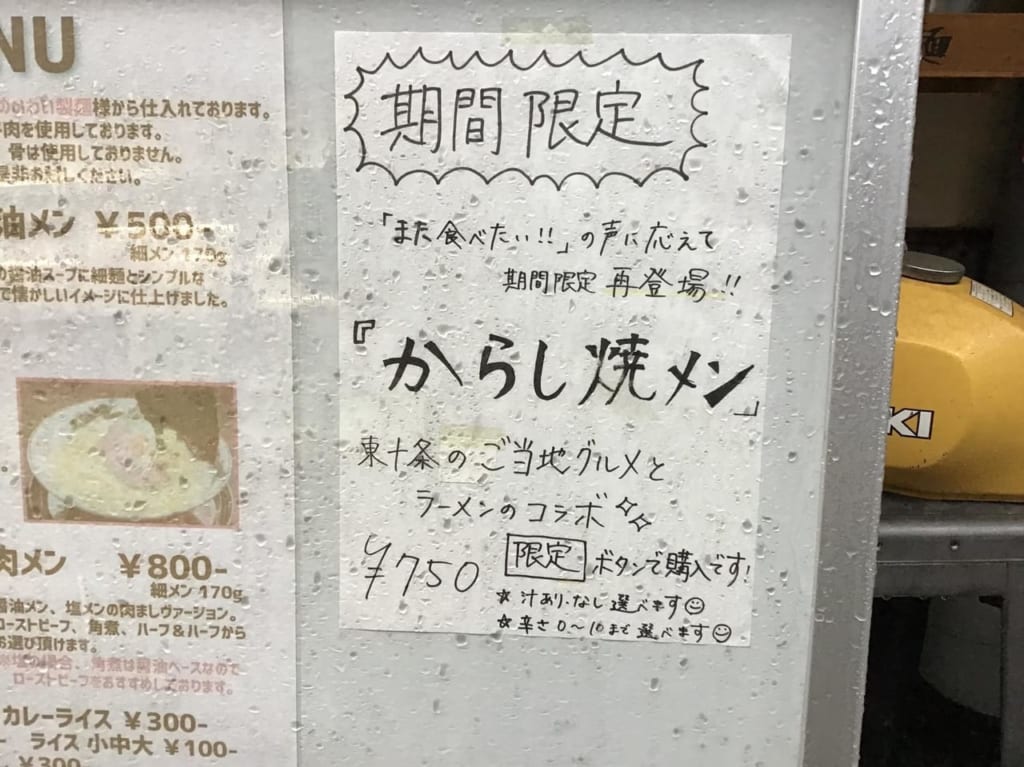 NU
様から仕入れております。
肉を使用しております。
骨は使用しておりません。
是非お試しください。
油メン ￥500-
細メン 170g
の醤油スープに細麺とシンプルな
で懐かしいイメージに仕上げました。
肉メン ￥800-
細メン 170g
醤油メン、塩メンの肉ましヴァージョン。
ローストビーフ、角煮、ハーフ&ハーフから
お選び頂けます。
の場合、角煮は醤油ベースなので
ローストビーフをおすすめしております。
カレーライス ￥300-
ライス 小中大 ￥100-
￥300-
期間限定
「また食べたい!!」の声に応えて
期間限定 再登場!!
『からし焼メン』
東十条のご当地グルメと
ラーメンのコラボ
￥750
限定 ボタンで購入です!
☆ 汁あり・なし選べます
☆ 辛さ0〜10まで選べます
KI